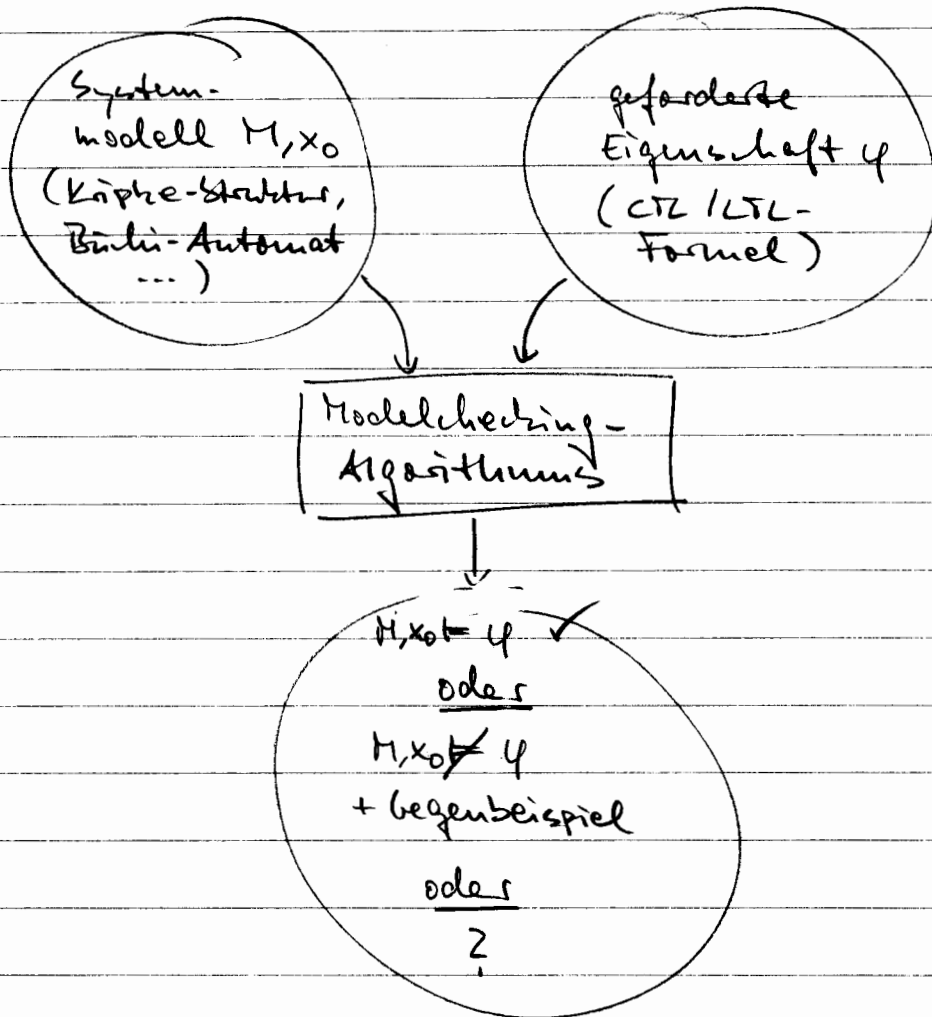 System-
modell M,x₀
(Kripke-Struktur,
Büchi-Automat
...)
geforderte
Eigenschaft φ
(CTL/LTL-
Formel)
Modelchecking-
Algorithmus
M,x₀ ⊨ φ ✓
oder
M,x₀ ⊭ φ
+ Gegenbeispiel
oder
?